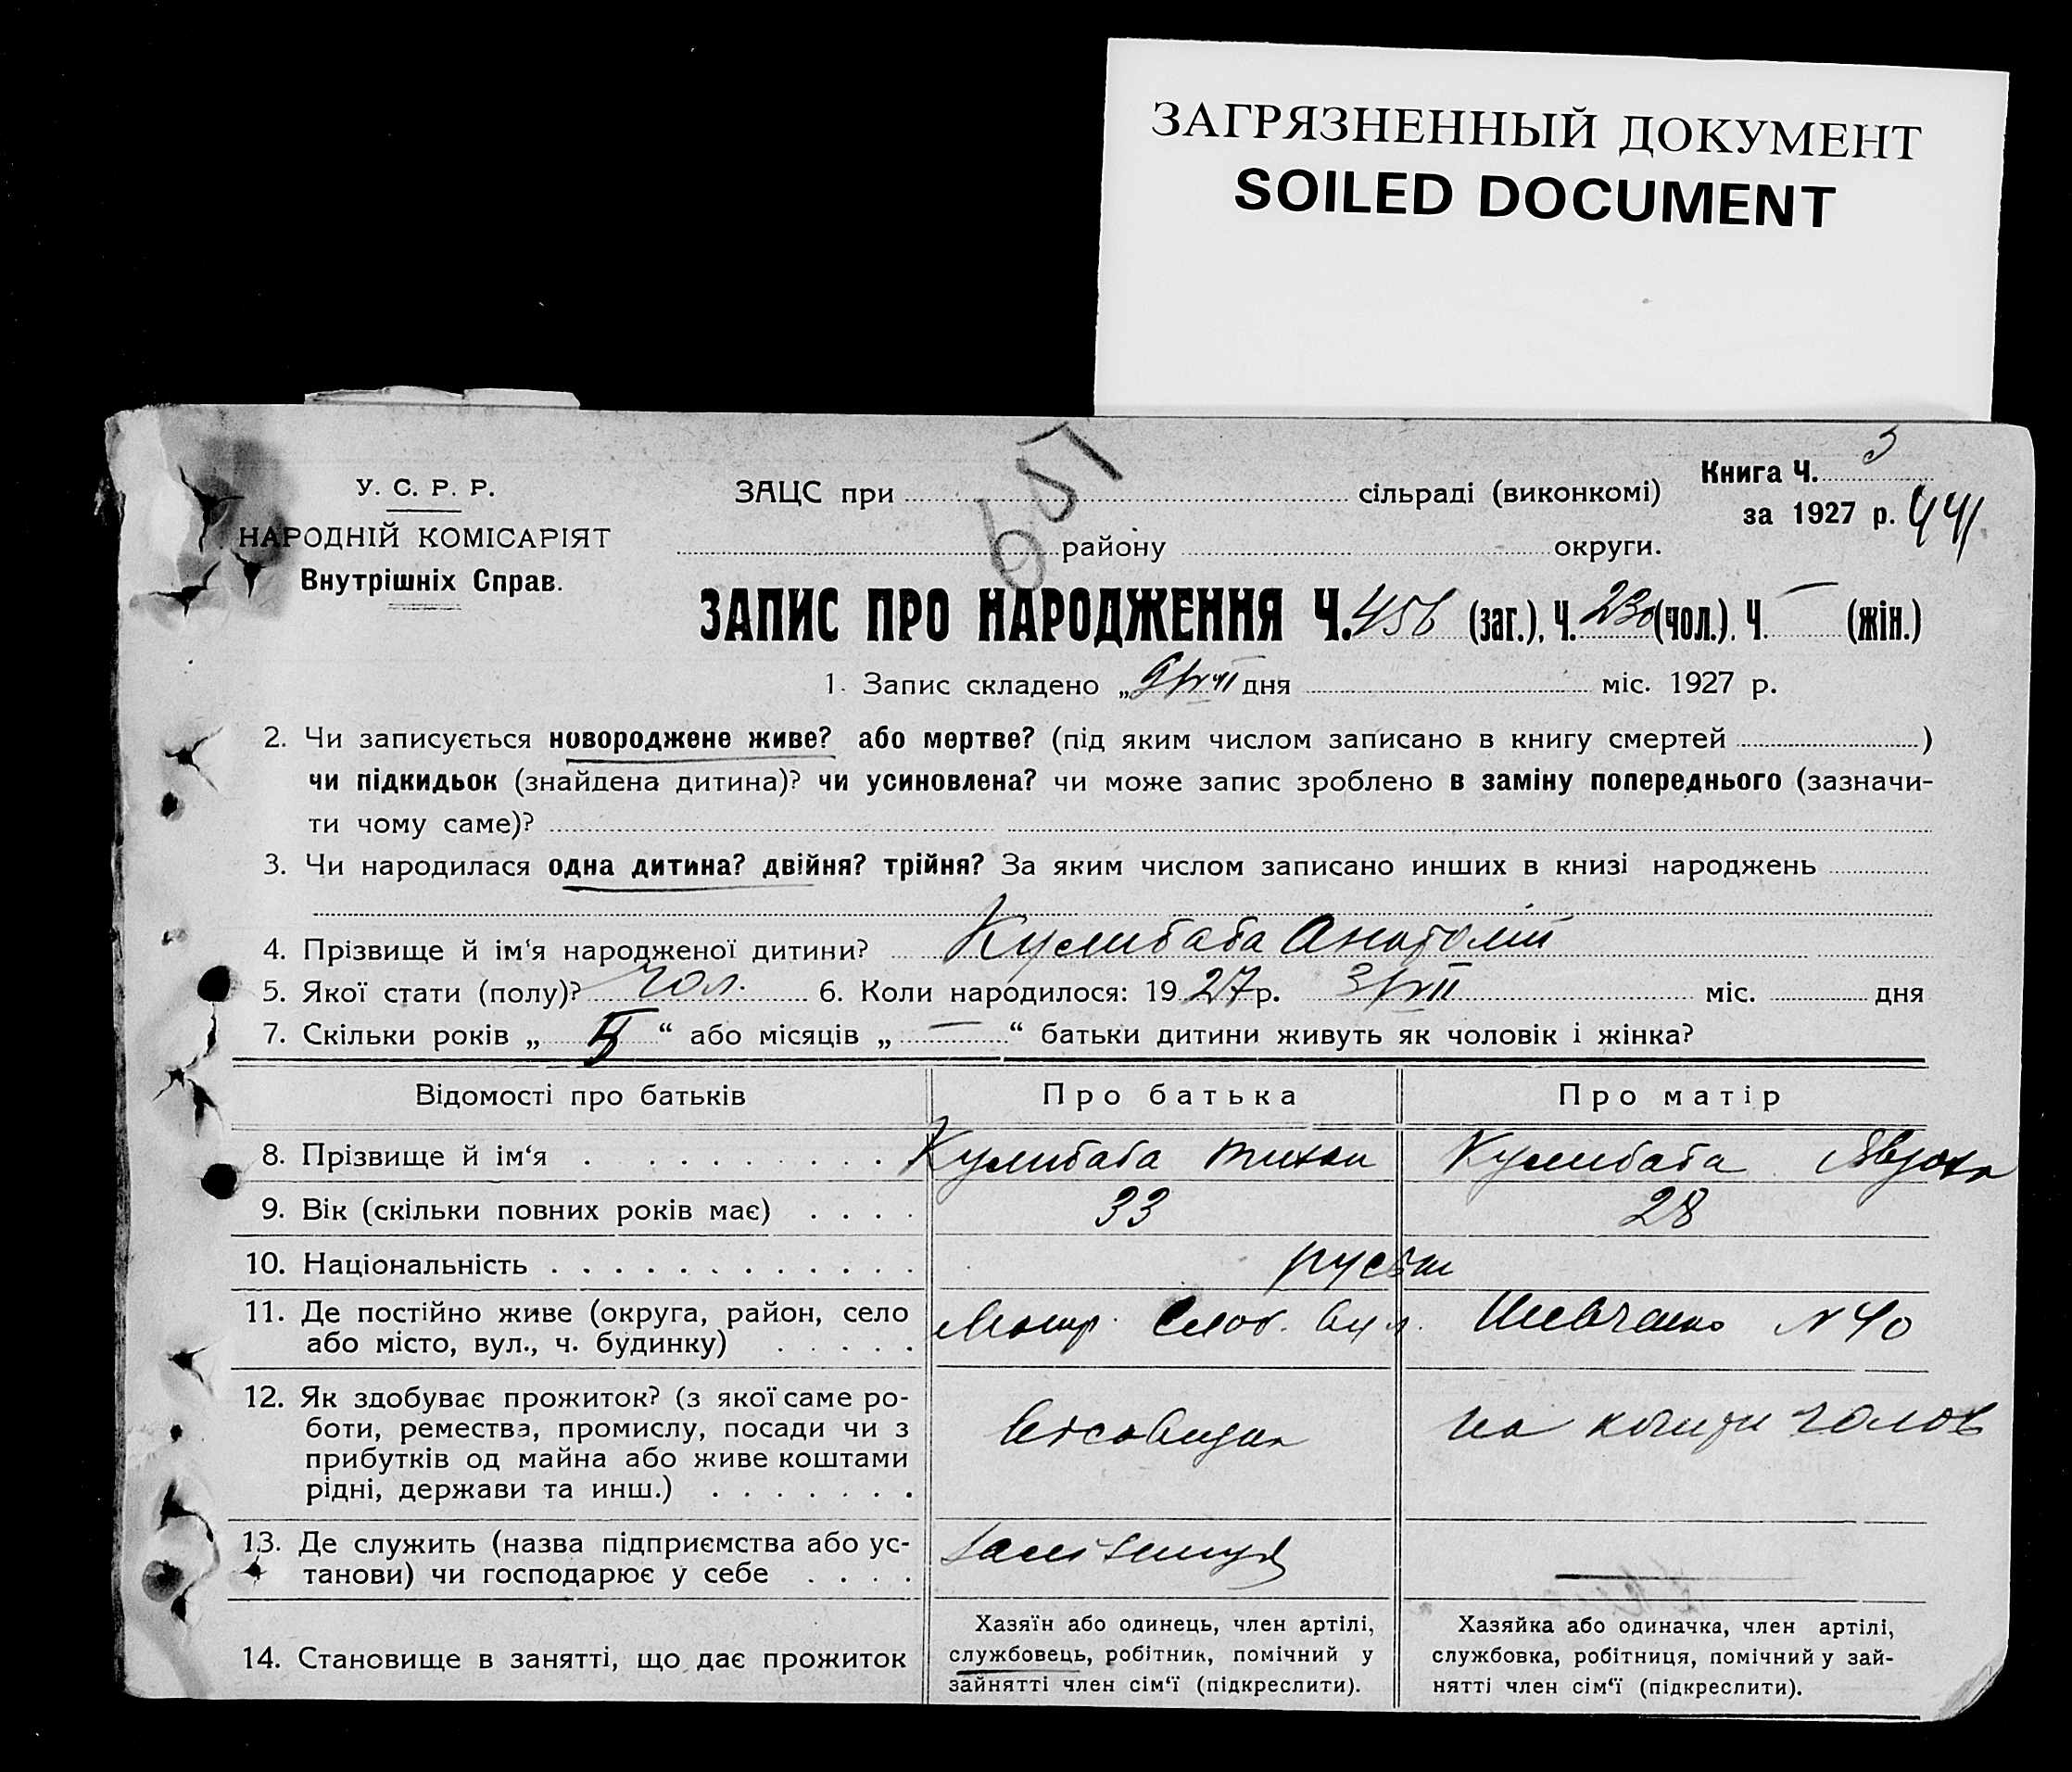 ЗАГРЯЗНЕННЫЙ ДОКУМЕНТ
SOILED DOCUMENT
651
Книга Ч. 3
У. С. Р. Р.
ЗАЦС при сільраді (виконкомі)
за 1927 р. 441
НАРОДНІЙ КОМІСАРІЯТ
району округи.
Внутрішніх Справ.
ЗАПИС ПРО НАРОДЖЕННЯ Ч. 456 (заг.), Ч. 230 (чол.), Ч. — (жін.)
1. Запис складено „ 9/VII дня міс. 1927 р.
2. Чи записується новороджене живе? або мертве? (під яким числом записано в книгу смертей )
чи підкидьок (знайдена дитина)? чи усиновлена? чи може запис зроблено в заміну попереднього (зазначи-
ти чому саме)?
3. Чи народилася одна дитина? двійня? трійня? За яким числом записано инших в книзі народжень
4. Прізвище й ім‘я народженої дитини? Кулибаба Анатолій
5. Якої стати (полу)? чол. 6. Коли народилося: 1927 р. 3/VII міс. дня
7. Скільки років „ 5 “ або місяців „ — “ батьки дитини живуть як чоловік і жінка?
Відомості про батьків Про батька Про матір
8. Прізвище й ім‘я Кулибаба Тихон Кулибаба
9. Вік (скільки повних років має) 33 28
10. Національність руськ
11. Де постійно живе (округа, район, село Слоб. вул. Шевченко N 40
або місто, вул., ч. будинку)
12. Як здобуває прожиток? (з якої саме ро-
боти, ремества, промислу, посади чи з
прибутків од майна або живе коштами
рідні, держави та инш.)
на кошти чолов
13. Де служить (назва підприємства або ус-
танови) чи господарює у себе —
14. Становище в занятті, що дає прожиток
Хазяїн або одинець, член артілі,
службовець, робітник, помічний у
зайнятті член сім‘ї (підкреслити).
Хазяйка або одиначка, член артілі,
службовка, робітниця, помічний у зай-
нятті член сім‘ї (підкреслити).